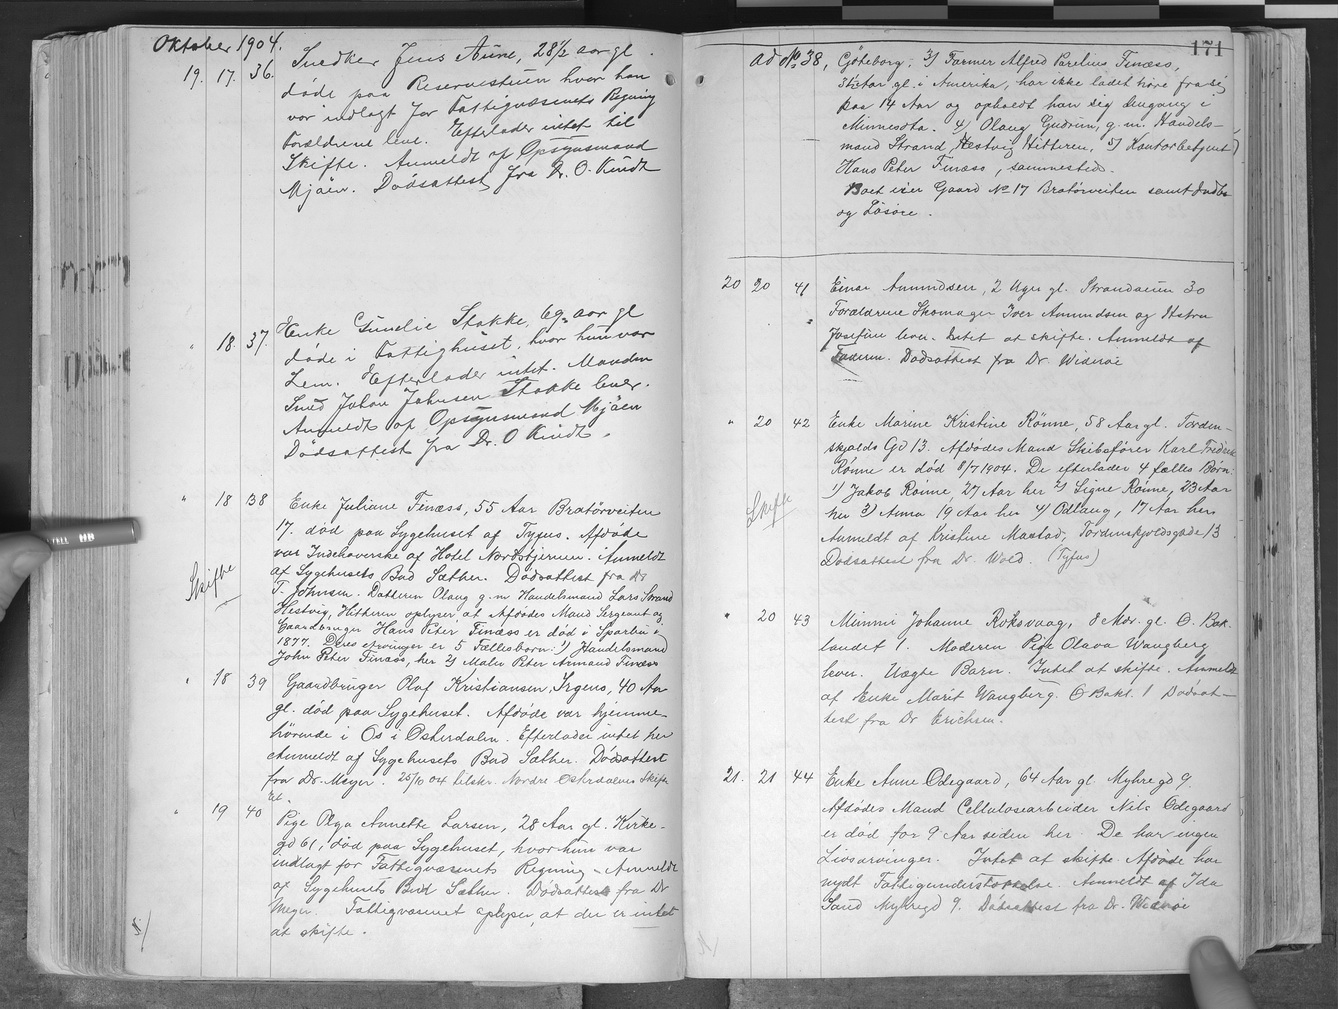 Oktober 1904.
19. 17. 36. Snedker Jens Aune, 28½ aar gl.
døde paa Reservestuen hvor han
var indlagt for Fattigvæsenets Regning
Forældrene leve. Efterlader intet til
Skifte. Anmeldt af Opsynsmand
Mjöen. Dödsattest fra Dr. O. Kindt
" 18. 37. Enke Gunelie Stokke, 69 aar gl
döde i Fattighuset, hvor hun var
Lem. Efterlader intet. Manden
Smed Johan Johnsen Stokke lever.
Anmeldt af Opsynsmand Mjöen
Dödsattest fra Dr. O Kindt.
" 18 38 Enke Juliane Finæss, 55 Aar Bratörveiten
17. död paa Sygehuset af Tyfus. Afdöde
var Indehaverske af Hotel Nordstjernen. Anmeldt
af Sygehusets Bud Sæther. Dödsattest fra Dr
T. Johnsen. Datteren Olaug g.m. Handelsmand Lars Strand
Skifte
Hestvig, Hitteren oplyser, at Afdödes Mand Sergeant og
Gaardbruger Hans Peter Finæss er död i Sparbu i
1877. Deres arvinger er 5 Fællesbarn: 1) Handelsmand
John Peter Finæss, her 2) Maler Peter Armand Finæss
" 18 39 Gaardbruger Olaf Kristiansen Irgens, 40 Aar
gl. död paa Sygehuset. Afdöde var hjemme-
hörende i Os i Österdalen. Efterlader intet her
Anmeldt af Sygehusets Bud Sæther. Dödsattest
fra Dr. Meyer. 25/10 04 tilskr. Nordre Österdalens Skifte
ret.
" 19 40 Pige Olga Annette Larsen, 28 Aar gl. Kirke-
gd 61, död paa Sygehuset, hvor hun var
indlagt for Fattigvæsenets Regning - Anmeldt
af Sygehusets Bud Sæther. Dödsattest fra Dr
Meyer. Fattigvæsenet oplyser, at der er intet
at skifte.
171
ad No 38, Göteborg, 3) Farmer Alfred Parelius Finæss,
gl. i Amerika, har ikke ladet höre fra sig
paa 14 Aar og opholdt han sig dengang i
Minnesota. 4) Olaug Gudrun, g.m. Handels-
mand Strand, Hestvig Hitteren, 5) Kontorbetjent
Hans Peter Finæss, sammesteds.
Boet eier Gaard No 17 Bratörveiten samt Indbo
og Lösöre.
20 20 41 Einar Amundsen, 2 Uger gl. Strandveien 30
Forældrene Skomager Iver Amundsen og Hustru
Josefine leve. Intet at skifte. Anmeldt af
Faderen. Dödsattest fra Dr. Wideröe
" 20 42 Enke Marine Kristine Rönne, 58 Aar gl. Torden-
skjolds Gd 13. Afdödes Mand Skibsförer Karl Fredrik
Rönne er död 8/7 1904. De efterlader 4 fælles Börn
Skifte
1) Jakob Rönne, 27 Aar her 2) Signe Rönne, 23 Aar
her 3) Anna 19 Aar her 4) Odlaug, 17 Aar her
Anmeldt af Kristine Maatad, Tordenskjoldsgade 13
Dödsattest fra Dr. Wold. (Tyfus)
" 20 43 Minni Johanne Roksvaag, 8 Mdr. gl. Ö. Bak-
landet 1. Moderen Pige Olava Wangberg
lever. Uægte Barn. Intet at skifte. Anmeldt
af Enke Marit Wangberg. Ö Bakl. 1 Dödsat-
test fra Dr Erichsen.
21. 21 44 Enke Anne Ödegaard, 64 Aar gl. Myhregd 9.
Afdödes Mand Cellulosearbeider Nils Ödegaard
er död for 9 Aar siden her. De har ingen
Livsarvinger. Intet at skifte. Afdöde har
nydt Fattigunderstöttelse. Anmeldt af Ida
Sand Myhregd 9. Dödsattest fra Dr. Wideröe